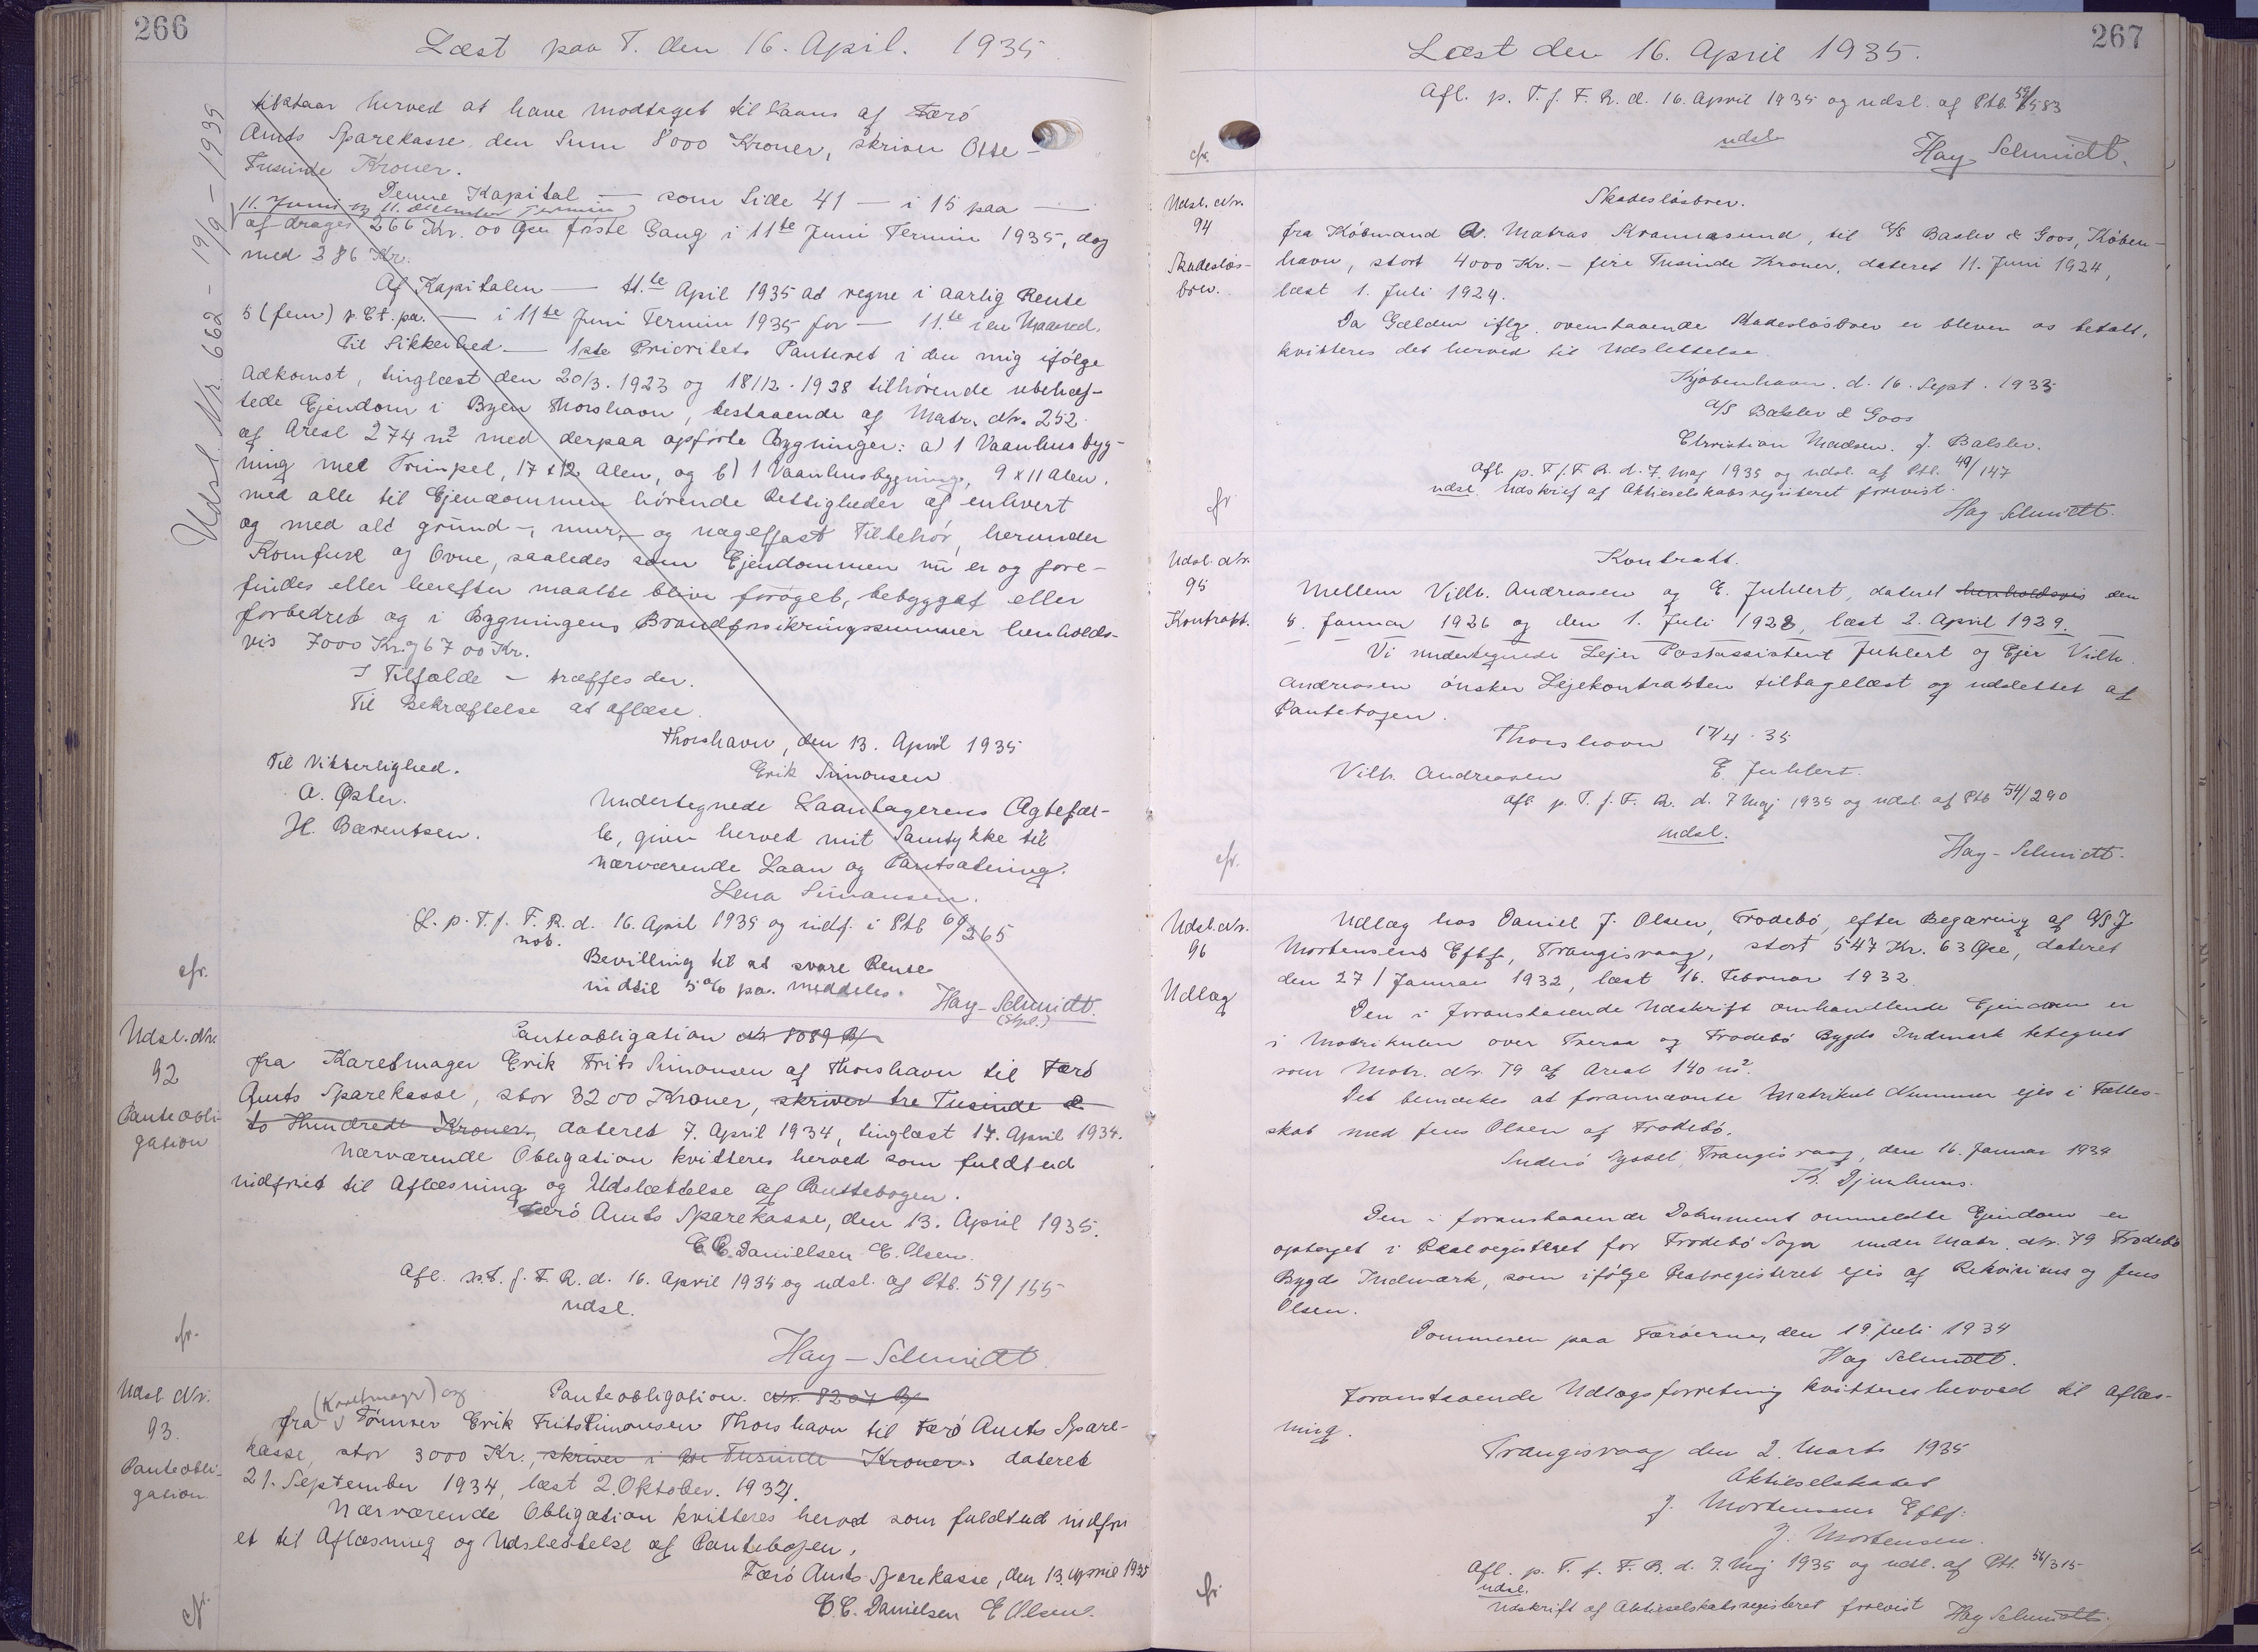 266
Læst paa T. den 16. April. 1935
Udsl. Nr. 662 - 19/9 - 1939
tilstaar herved at have modtaget til Laans af Færø
Amts Sparekasse den Sum 8000 Kroner, skriver Otte-
Tusinde Kroner.
Denne Kapital — som Side 41 — i 15 paa —
11. Juni og 11. December Termin
afdrages 266 Kr. 00 Øre første Gang i 11te Juni Termin 1935, dog
med 286 Kr.
Af Kapitalen — 11.te April 1935 at regne i aarlig Rente
5 (fem) p. Ct. pa. — i 11te Juni Termin 1935 for — 11.te i en Maaned.
Til Sikkerhed — 1ste Prioritets Panteret i den mig ifølge
Adkomst, tinglæst den 20/3. 1923 og 18/12. 1928 tilhørende ubehæf-
tede Ejendom i Byen Thorshavn, bestaaende af Matr. Nr. 252
af Areal 274 m2 med derpaa opførte Bygninger: a) 1 Vaanhusbyg-
ning med Trimpel, 17 x 12 Alen, og b) 1 Vaanhusbygning, 9 x 11 alen.
med alle til Ejendommen hørende Rettigheder af enhvert
og med alt grund-, mur-, og nagelfast Tilbehør, herunder
Komfure og Ovne, saaledes som Ejendommen nu er og fore-
findes eller herefter maatte blive forøget, bebygget eller
forbedret og i Bygningens Brandforsikringssummer henholds-
vis 7000 Kr. og 6700 Kr.
I Tilfælde — træffes der.
Til Bekræftelse at aflæse.
Thorshavn, den 13. April 1935
Til Vitterlighed.
Erik Simonsen
A. Øster.
H. Bærentsen.
Undertegnede Laantagerens Ægtefæl-
le, giver herved mit Samtykke til
nærværende Laan og Pantsætning.
Lena Simonsen.
L. p. T. f. F. R. d. 16. April 1935 og indf. i Ptb 60/265
not.
Bevilling til at svare Rente
indtil 5% pa. meddeles.
Hay-Schmidt.
(Stpl.)
cfr.
Udsl. Nr.
92
Panteobli-
gation
Panteobligation Nr. 8089 B/
fra Karetmager Erik Frits Simonsen af Thorshavn til Færø
Amts Sparekasse, stor 3200 Kroner, skriver tre Tusinde &
to Hundrede Kroner, dateret 7. April 1934, tinglæst 17. April 1934.
Nærværende Obligation kvitteres herved som fuldtud
indfriet til Aflæsning og Udslættelse af Panttebogen.
Færø Amts Sparekasse, den 13. April 1935.
C. C. Danielsen E. Olsen.
Afl. p. T. f. F. R. d. 16. April 1935 og udsl. af Ptb. 59/155
udsl.
Hay-Schmidt.
cfr.
Udsl Nr.
93.
Panteobli-
gation.
Panteobligation. Nr. 8207 B/
(Karetmager) og
fra Tømrer Erik Frits Simonsen Thorshavn til Færø Amts Spare-
kasse, stor 3000 Kr., skriver i tre Tusinde Kroner. dateret
21. September 1934, læst 2. Oktober. 1934.
Nærværende Obligation kvitteres herved som fuldtud indfri
et til Aflæsning og Udslettelse af Pantebogen.
Færø Amts Sparekasse, den 13. April 1935
C. C. Danielsen E Olsen.
cfr.
267
Læst den 16. April 1935.
Afl. p. T. f. F. R. d. 16. April 1935 og udsl. af Ptb. 59/583
udsl.
Hay-Schmidt.
cfr.
Udsl. Nr.
94
Skadesløs-
brev.
Skadesløsbrev.
fra Købmand A. Matras Strannasund, til A/S Baslev & Goos, Køben-
havn, stort 4000 Kr. - fire Tusinde Kroner, dateret 11. Juni 1924,
læst 1. Juli 1924.
Da Gælden iflg. ovenstaaende Skadesløsbrev er bleven os betalt,
kvitteres det herved til Udslettelse.
Kjøbenhavn. d. 16. Sept. 1933
A/S Balslev & Goos
Christian Madsen. J. Balslev.
Afl. p. T. f. F. R. d. 7. Maj 1935 og udsl. af Ptb. 49/147
udsl. Udskrift af Aktieselskabsregisteret forevist.
Hay Schmidt.
cfr
Udsl. Nr.
95
Kontrakt.
Kontrakt.
Mellem Vilh. Andreasen og E. Juhlert, dateret henholdsvis den
4. Januar 1926 og den 1. Juli 1928, læst 2. April 1929.
Vi undertegnede Lejer Postassistent Juhlert og Ejer Vilh.
Andreasen ønsker Lejekontrakten tilbagelæst og udslettet af
Pantebogen.
Thorshavn 17/4. 35
Vilh. Andreasen E. Juhlert.
Afl. p. T. f. F. R. d. 7 Maj 1935 og udsl. af Ptb 54/290
udsl.
Hay-Schmidt.
cfr.
Udsl. Nr.
96
Udlæg
Udlæg hos Daniel J. Olsen, Frodebø, efter Begæring af A/S J
Mortensens Eftf, Trangisvaag, stort 547 Kr. 63 Øre, dateret
den 27/ Januar 1932, læst 16. Februar 1932.
Den i foranstaaende Udskrift omhandlende Ejendom er
i Matrikulen over Tveraa og Frodebø Bygds Indmark betegnet
som Matr. Nr. 79 af Areal 140 m2.
Det bemærkes at forannævnte Matrikul Nummer ejes i Fælles-
skab med Jens Olsen af Frodebø.
Suderø Syssel, Trangisvaag, den 16. Januar 1934
K. Djurhuus.
Den i foranstaaende Dokument ommeldte Ejendom er
optaget i Realregisteret for Frodebø Sogn under Matr. Nr. 79 Frodebø
Bygds Indmark, som ifølge Realregisteret ejes af Rekvisitus og Jens
Olsen.
Dommeren paa Færøerne, den 19. Juli 1934
Hay Schmidt.
Foranstaaende Udlægsforretning kvitteres herved til Aflæs-
ning.
Trangisvaag den 2. Marts 1935
Aktieselskabet
J. Mortensens Eftf.
J. Mortensen.
Afl. p. T. f. F. R. d. 7. Maj 1935 og udsl. af Ptb. 56/315
udsl.
Udskrift af Aktieselskabsregisteret forevist Hay Schmidt.
cfr.